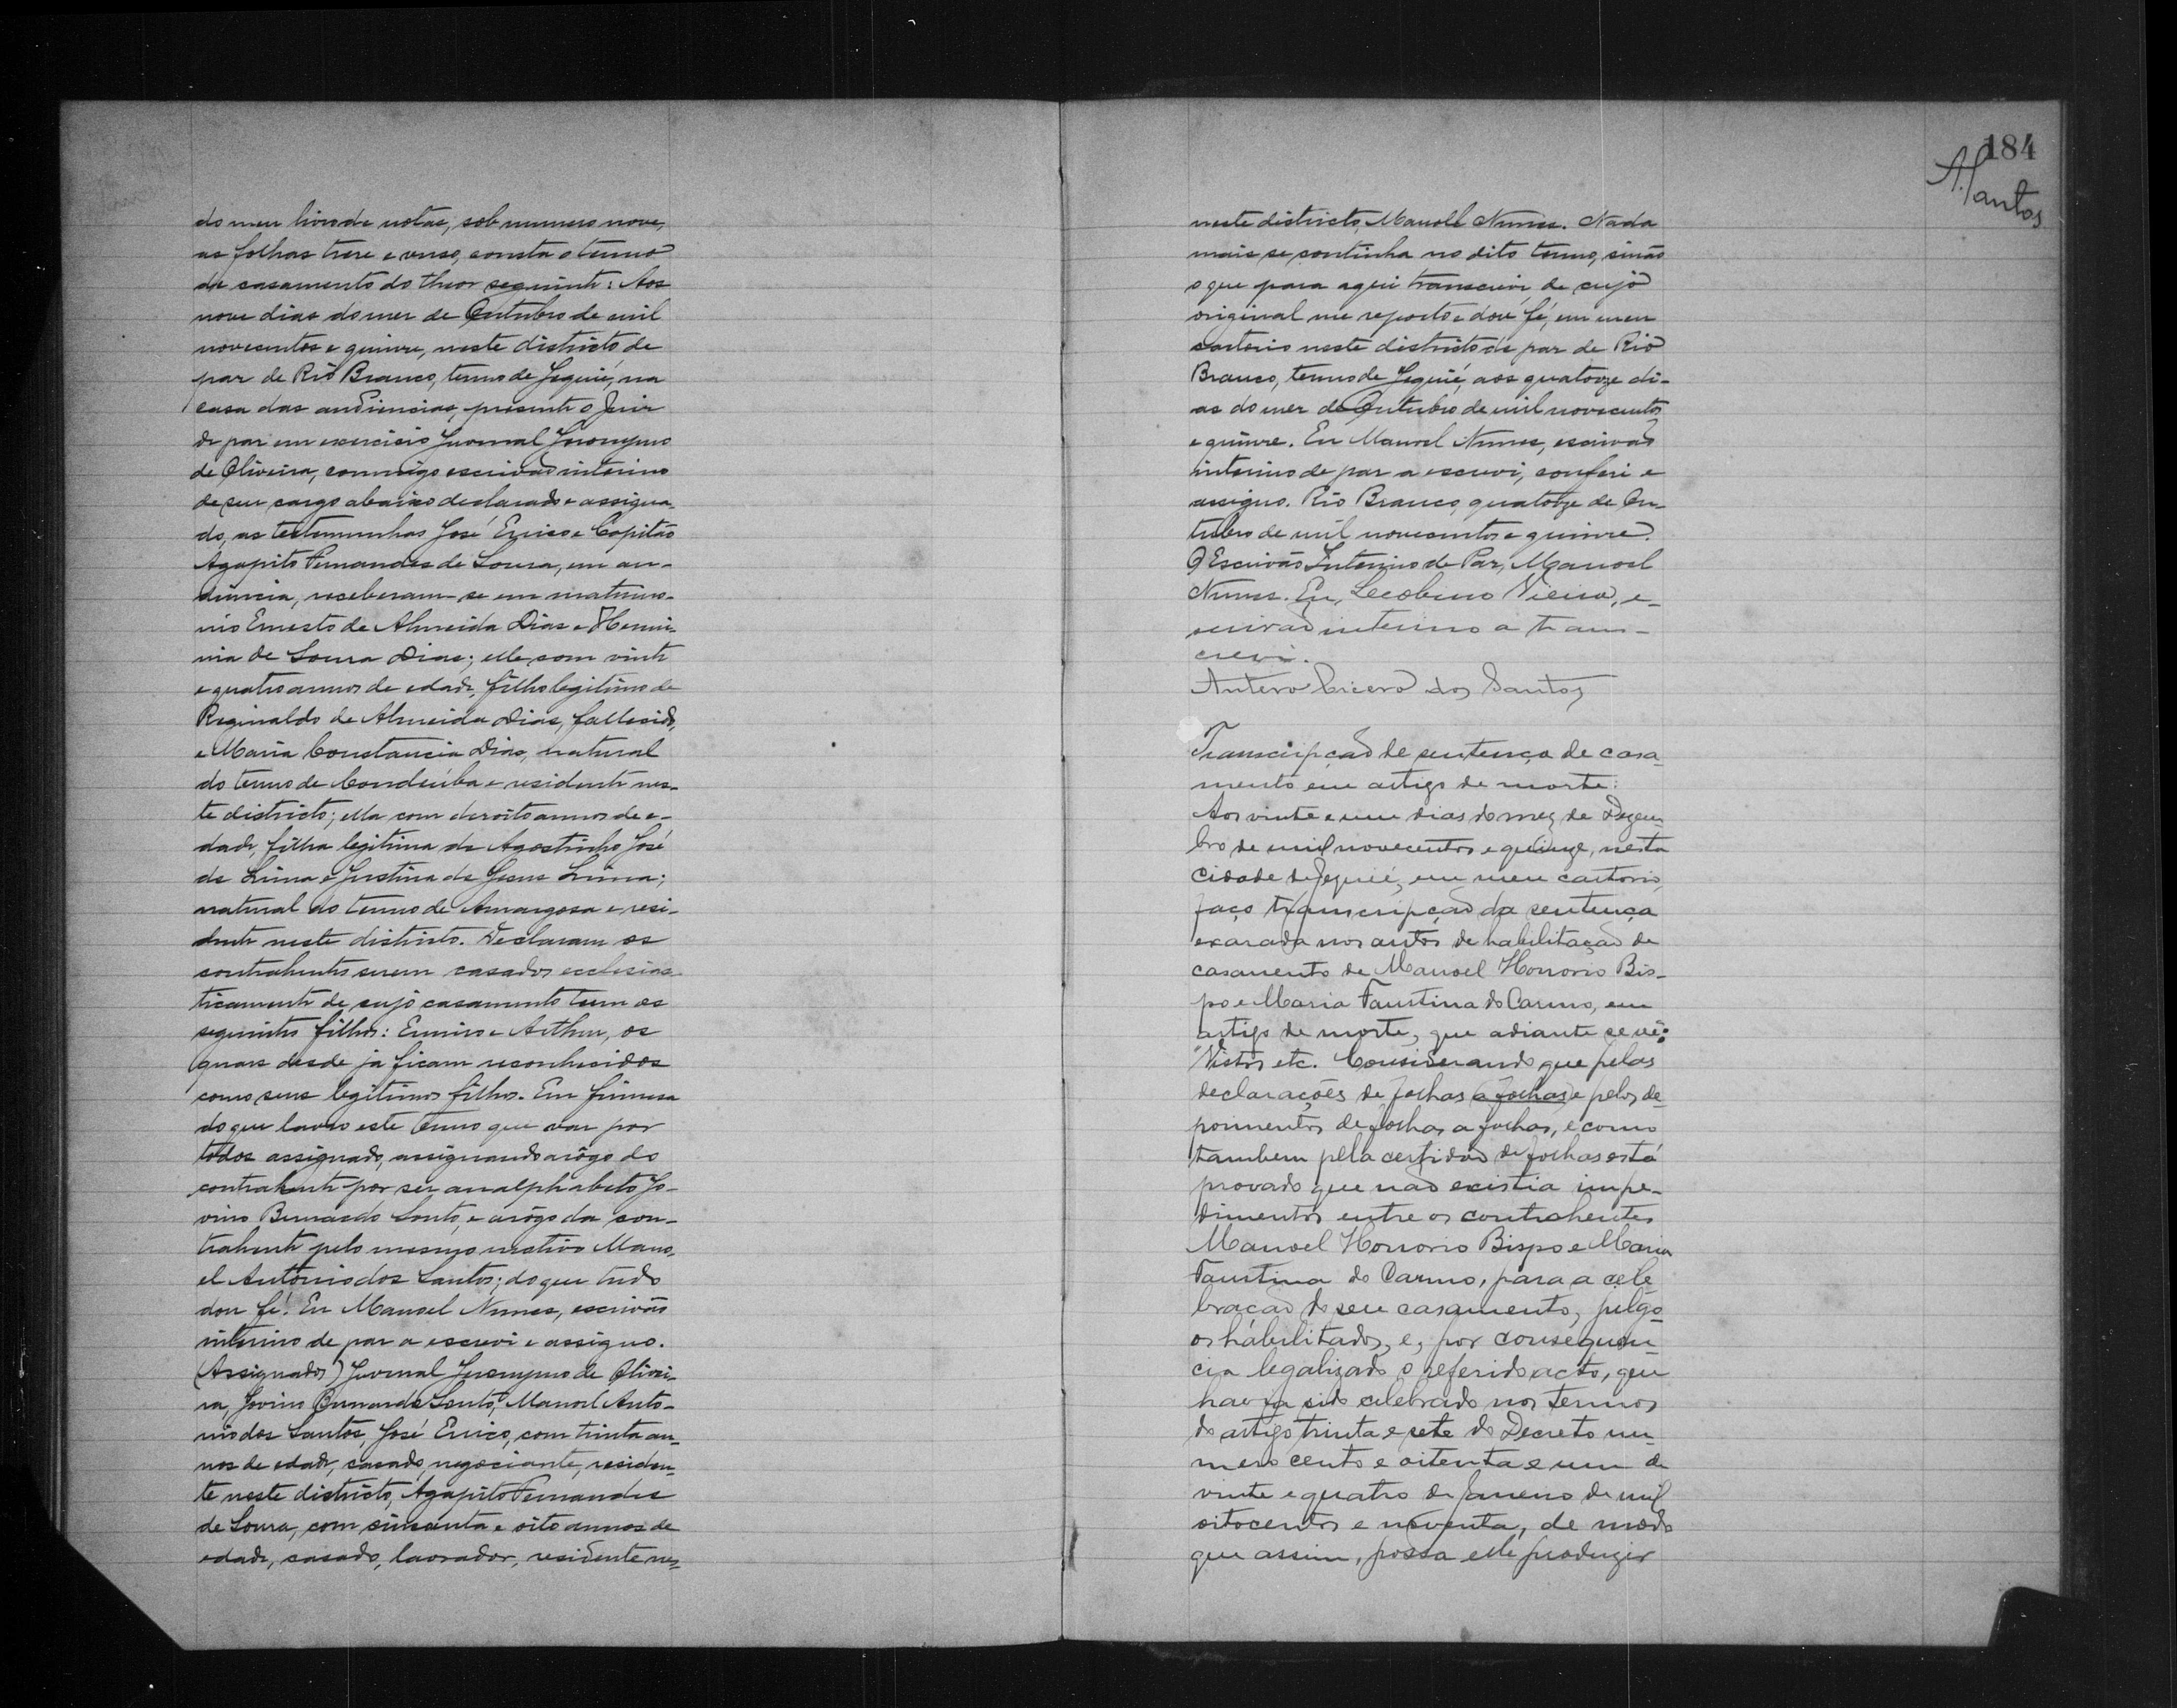 do meu livro de notas, sob numero nove,
as folhas treze e verso, consta o termo
de casamento do theor seguinte: Aos
nove dias do mez de Outubro de mil
novecentos e quinze, neste districto de
paz de Rio Branco, termo de Jequié, na
casa das audiencias, presente o Juiz
de paz em exercicio Juvenal Jeronymo
de Oliveira, commigo escrivão interino
de seu cargo abaixo declarado e assigna-
do, as testemunhas José Errico e Capitão
Agapito Fernandes de Souza, em au-
diencia, receberam-se em matrimo-
nio Ernesto de Almeida Dias e Hermi-
nia de Souza Dias; elle com vinte
e quatro annos de edade, filho legitimo de
Reginaldo de Almeida Dias, fallecido,
e Maria Constancia Dias, natural
do termo de Condeúba e residente nes-
te districto; ella com dezoito annos de e-
dade, filha legitima de Agostinho José
de Lima e Justina de Jesus Lima;
natural do termo de Amargosa e resi-
dente neste districto. Declaram os
contrahentes serem casados ecclesias-
ticamente de cujo casamento teem os
seguintes filhos: Enniro e Arthur, os
quaes desde já ficam reconhecidos
como seus legitimos filhos. Em firmesa
do que lavro este termo que vae por
todos assignado, assignando a rôgo do
contrahente por ser analphabeto Jo-
vino Bernardo Souto, e a rôgo da con-
trahente pelo mesmo motivo Mano-
el Antonio dos Santos; do que tudo
dou fé. Eu Manoel Nunes, escrivão
interino de paz a escrevi e assigno.
(Assignados) Juvenal Jeronymo de Olivei-
ra, Jovino Bernardo Souto, Manoel Anto-
nio dos Santos, José Errico, com trinta an-
nos de edade, casado, negociante, residen-
te neste districto, Agapito Fernandes
de Souza, com cincoenta e oito annos de
edade, casado, lavrador, residente nes-
184
A. Santos
neste districto, Manoel Nunes. Nada
mais se continha no dito termo, sinão
o que para aqui transcrevi de cujo
original me reporto e dou fé, em meu
cartorio neste districto de paz de Rio
Branco, termo de Jequié, aos quatorze di-
as do mez de Outubro de mil novecentos
e quinze. Eu Manoel Nunes, escrivão
interino de paz a escrevi, conferi e
assigno. Rio Branco, quatorze de Ou-
tubro de mil novecentos e quinze.
O Escrivão Interino de Paz, Manoel
Nunes. Eu, Vieira, e-
scrivão interino a trans-
crevi.
Antero Cicero dos Santos
Transcripção de sentença de casa-
mento em artigo de morte:
Aos vinte e um dias do mez de Dezem-
bro de mil novecentos e quinze, nesta
cidade de Jequié, em meu cartorio,
faço transcripção da sentença
exarada nos autos de habilitação de
casamento de Manoel Honorio Bis-
po e Maria Faustina do Carmo, em
artigo de morte, que adiante se vê:
"Vistos etc. Considerando que pelas
declarações de folhas a folhas e pelos de-
poimentos de folhas a folhas, e como
tambem pela certidão de folhas está
provado que não existia impe-
dimentos entre os contrahentes
Manoel Honorio Bispo e Maria
Faustina do Carmo, para a cele-
bração do seu casamento, julgo-
os habilitados, e, por consequen-
cia legalizado o referido acto, que
havia sido celebrado nos termos
do artigo trinta e sete do Decreto nu-
mero cento e oitenta e um de
vinte e quatro de Janeiro de mil
oitocentos e noventa, de modo
que assim, possa elle produzir